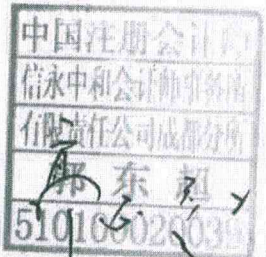 中国注册会计师
信永中和会计师事务所
有限责任公司成都分所
郭东超
510100020039